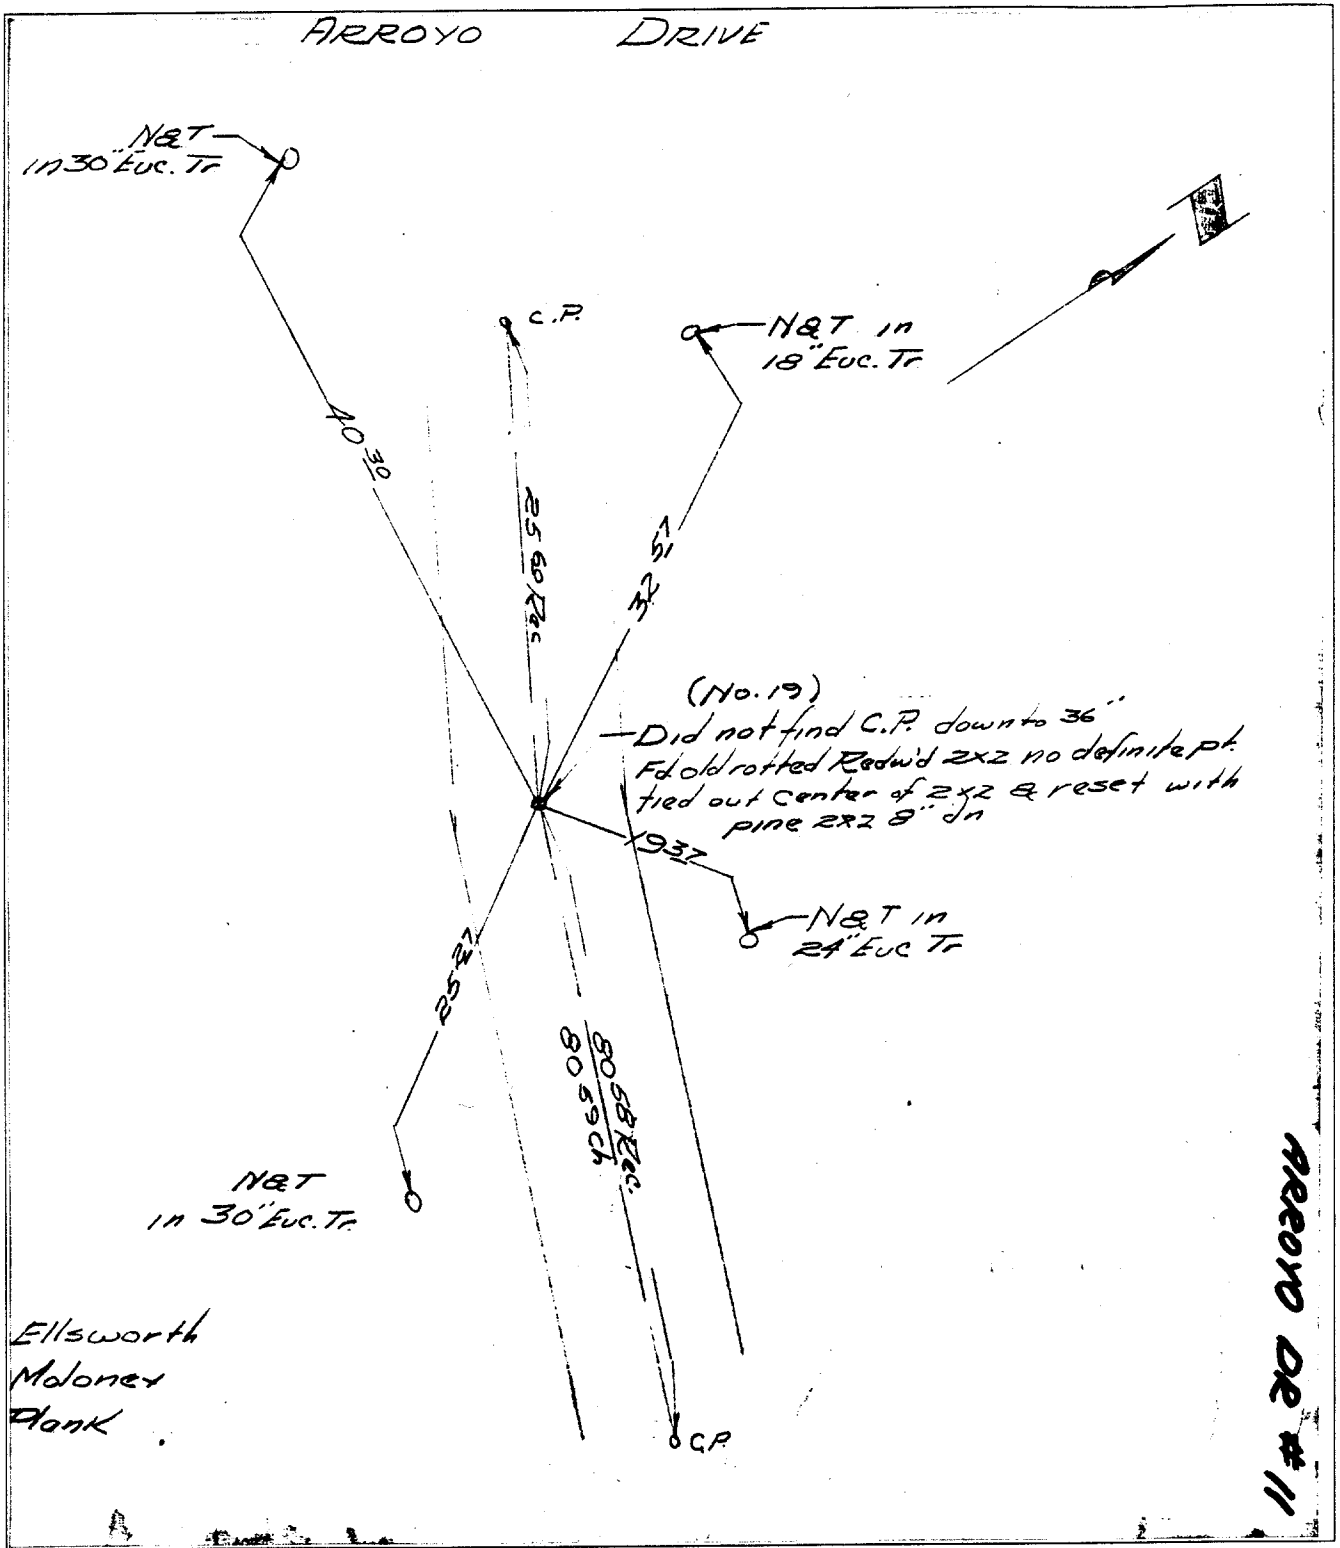 ARROYO DRIVE
N&T
in 30" Euc. Tr
C.P.
N&T in
18" Euc. Tr
40 30
25 60 Rec
32 57
(No. 19)
Did not find C.P. down to 36"
Fd old rotted Redw'd 2x2 no definite pt.
tied out center of 2x2 & reset with
pine 2x2 8" dn
1937
N&T in
24" Euc Tr
25 27
80 58 Rec.
80 59 Ch
N&T
in 30" Euc. Tr.
Ellsworth
Moloney
Plank
C.P.
ARROYO DR #11